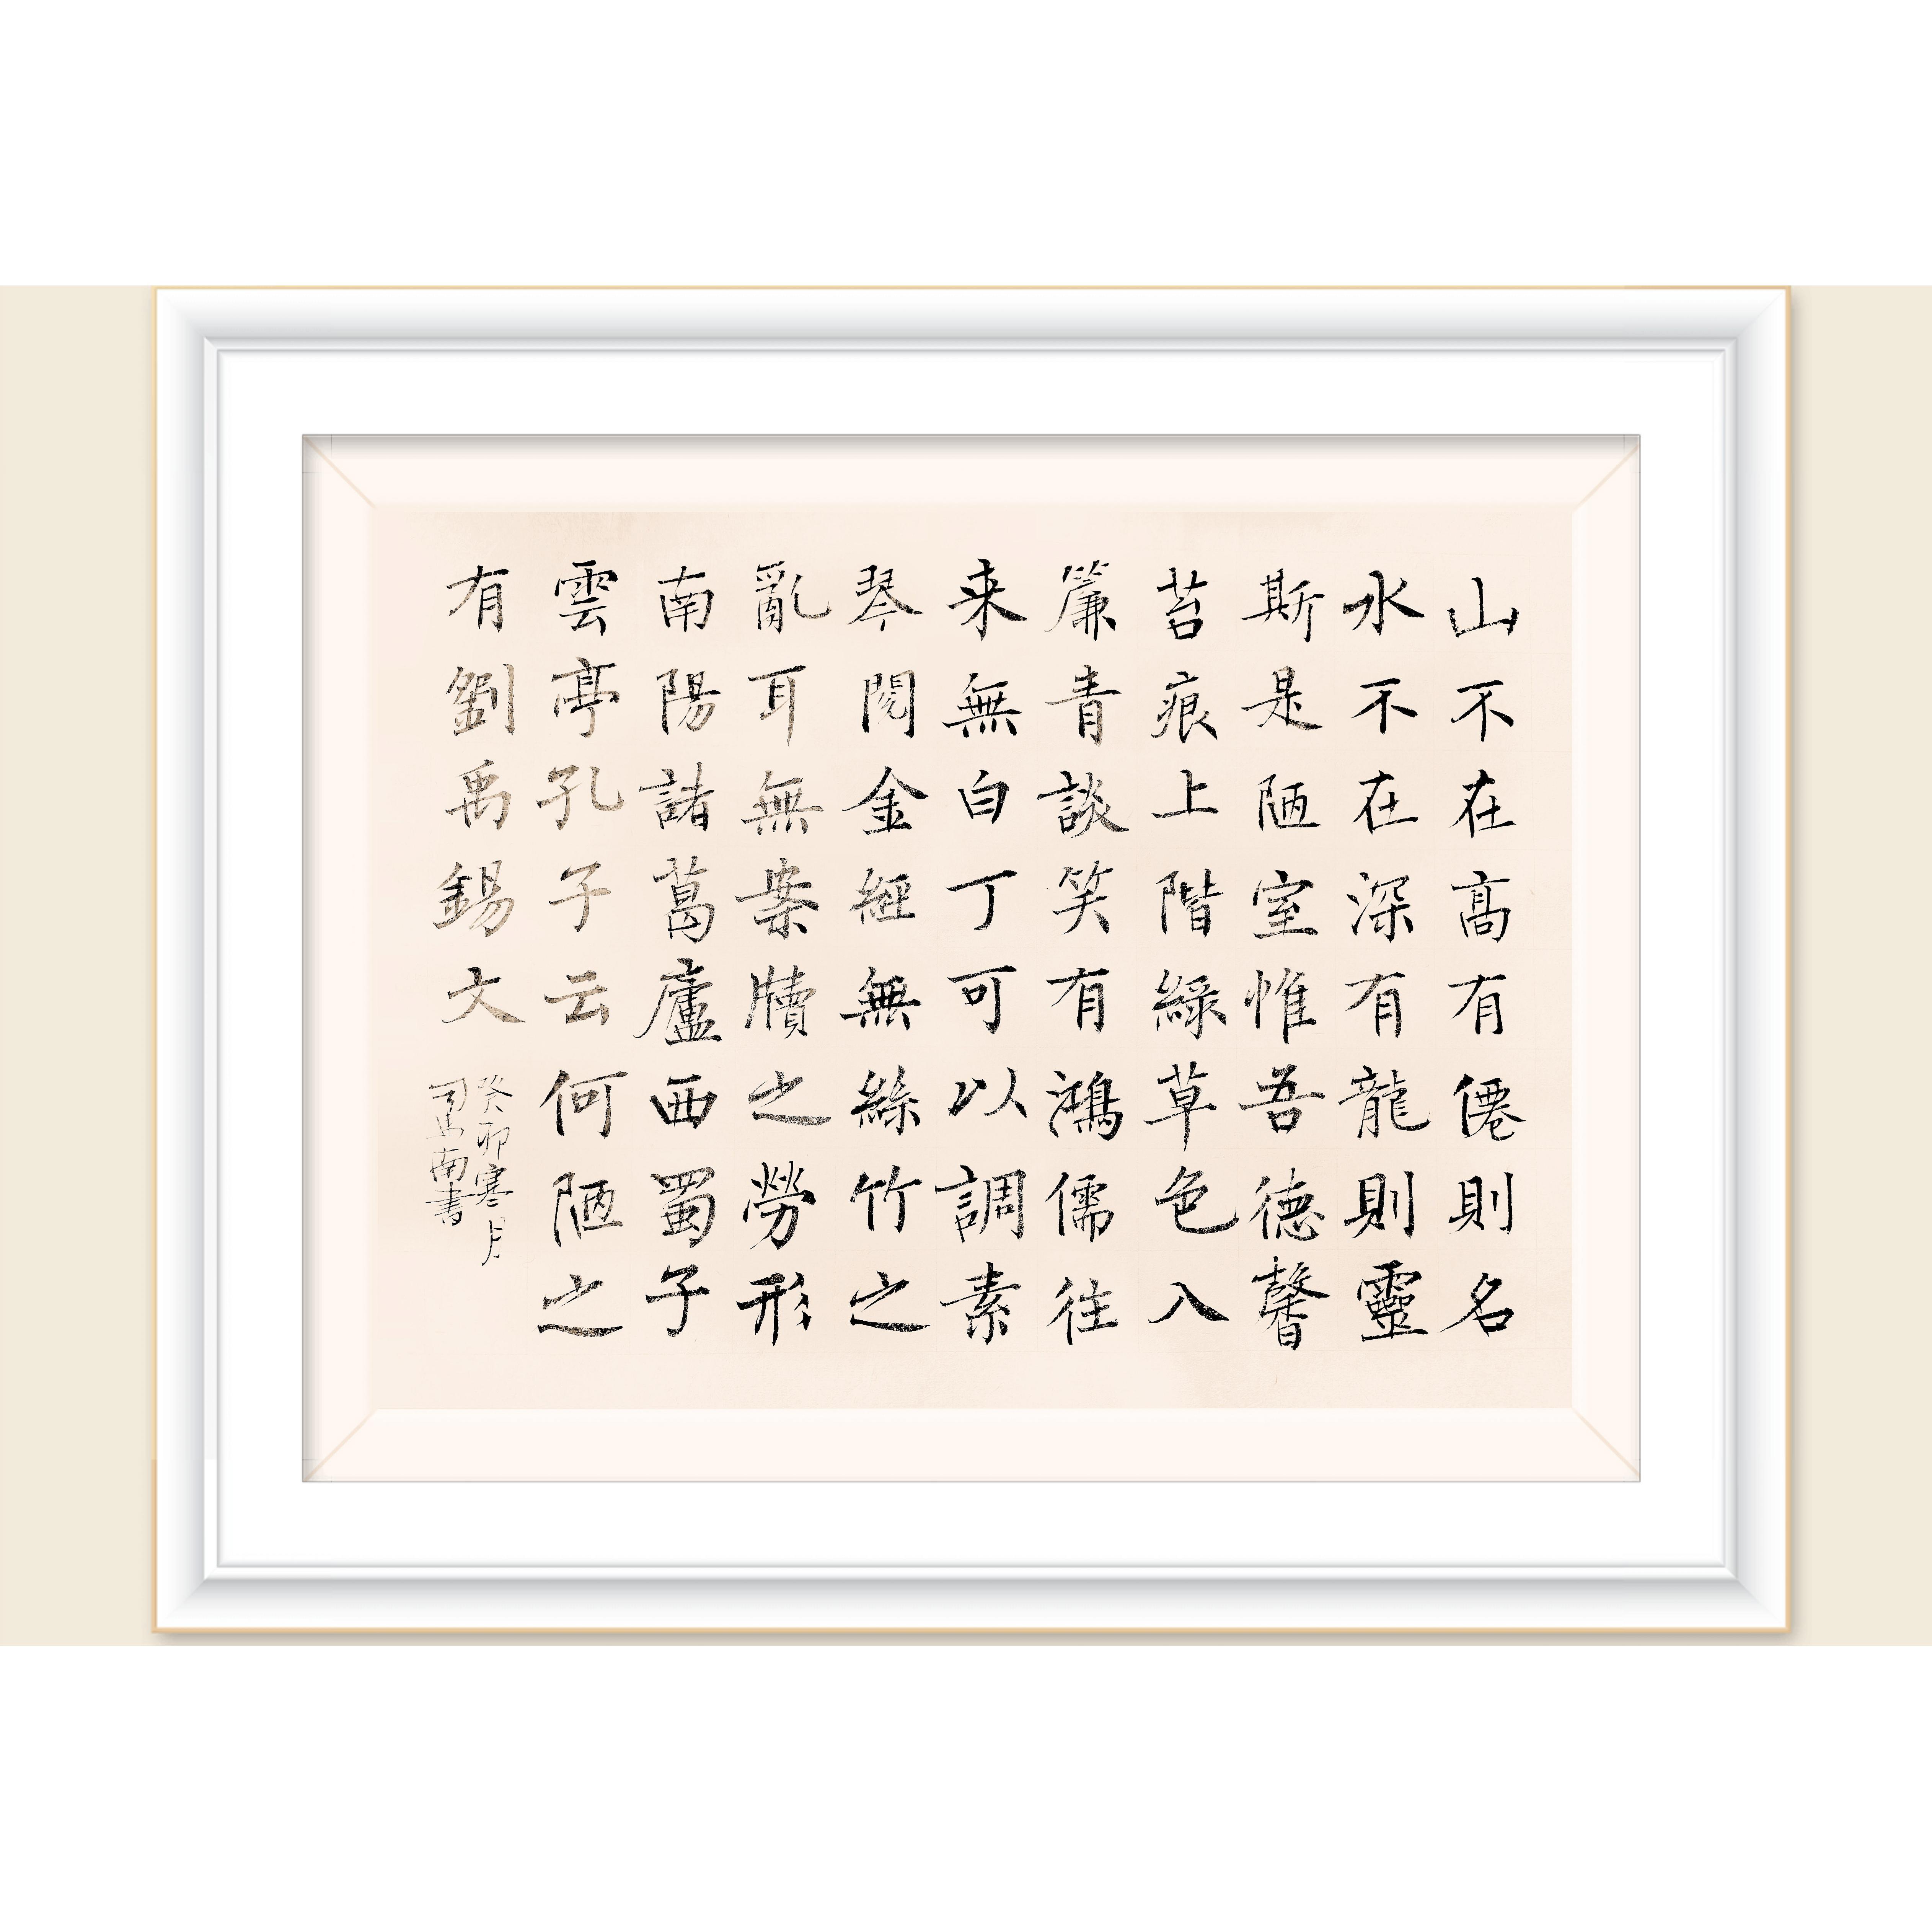 山不在高有僊則名
水不在深有龍則靈
斯是陋室惟吾德馨
苔痕上階綠草色入
簾青談笑有鴻儒往
来無白丁可以調素
琴閱金經無絲竹之
亂耳無案牘之勞形
南陽諸葛廬西蜀子
雲亭孔子云何陋之
有劉禹錫文
癸卯寒月
司馬南書